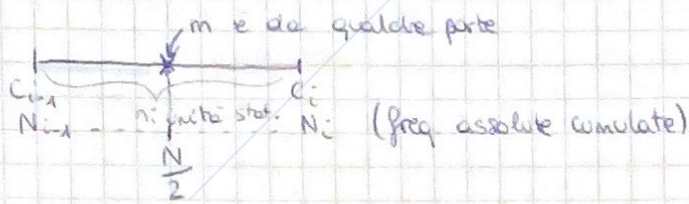 m è da qualche parte
C_{i-1} n_i unità stat. C_i
N_{i-1} N_i (freq assolute cumulate)
N/2